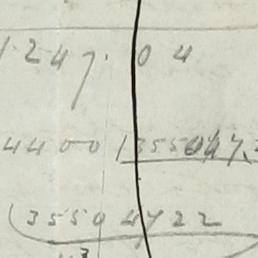 1247.04
4400 | 355047.2
(35504722